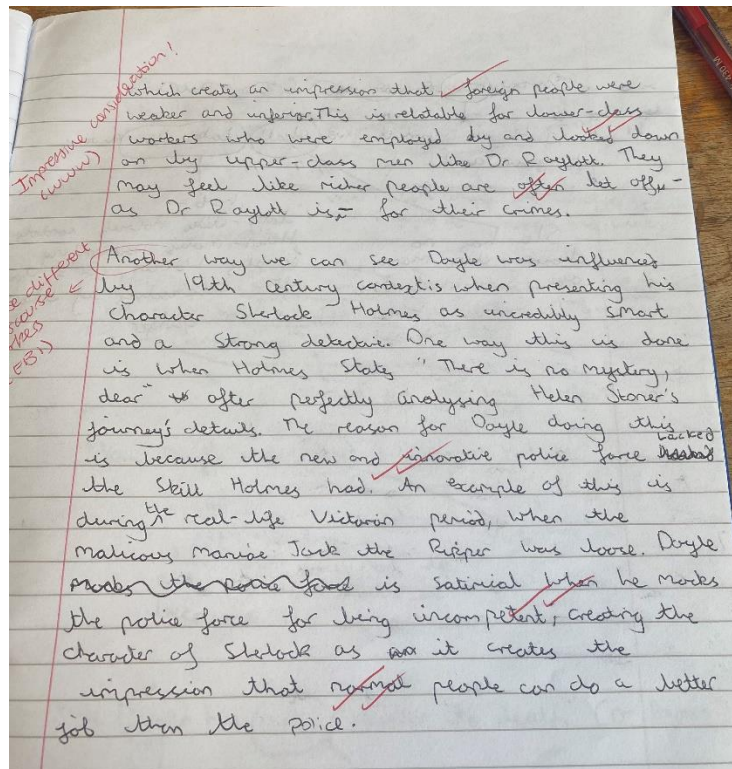 Impressive consideration!
(WWW)
which creates an impression that foreign people were
weaker and inferior. This is relatable for lower-class
workers who were employed by and looked down
on by upper-class men like Dr Roylott. They
may feel like richer people are often let off,-
as Dr Roylott is,- for their crimes.
different
(EBI)
Another way we can see Doyle was influenced
by 19th century context is when presenting his
character Sherlock Holmes as incredibly smart
and a strong detective. One way this is done
is when Holmes states "There is no mystery,
dear" after perfectly analysing Helen Stoner's
journey's details. The reason for Doyle doing this
is because the new and innovative police force lacked
the skill Holmes had. An example of this is
during the real-life Victorian period, when the
malicous maniac Jack the Ripper was loose. Doyle
mocks the police force is satirical when he mocks
the police force for being incompetent, creating the
character of Sherlock as it creates the
impression that normal people can do a better
job than the police.